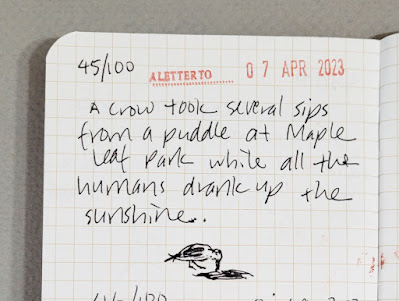 45/100 A LETTER TO 07 APR 2023
A crow took several sips
from a puddle at Maple
Leaf Park while all the
humans drank up the
sunshine..